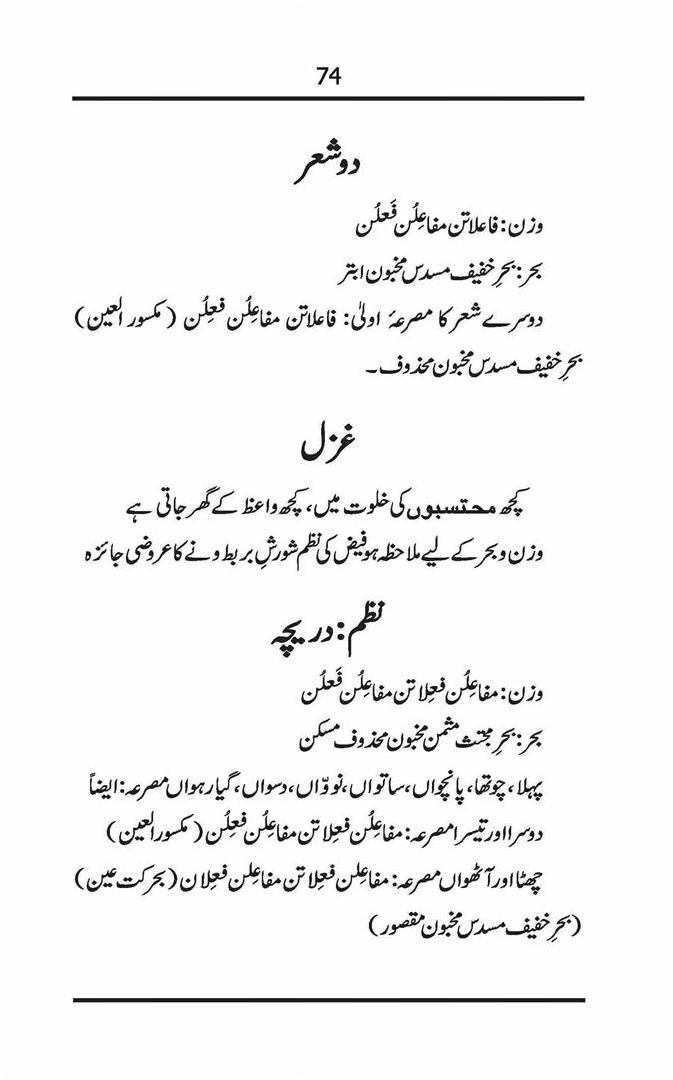 74
دو شعر
وزن: فاعلاتن مفاعِلُن فَعلُن
بحر: بحرِ خفیف مسدس مخبون ابتر
دوسرے شعر کا مصرعۂ اولیٰ: فاعلاتن مفاعِلُن فعِلُن (مکسور العین)
بحرِ خفیف مسدس مخبون محذوف۔
غزل
کچھ محتسبوں کی خلوت میں، کچھ واعظ کے گھر جاتی ہے
وزن و بحر کے لیے ملاحظہ ہو فیض کی نظم شورشِ بربط و نے کا عروضی جائزہ
نظم: دریچہ
وزن: مفاعِلُن فعِلاتن مفاعِلُن فَعلُن
بحر: بحرِ مجتث مثمن مخبون محذوف مسکن
پہلا، چوتھا، پانچواں، ساتواں، نوّواں، دسواں، گیارہواں مصرعہ: ایضاً
دوسرا اور تیسرا مصرعہ: مفاعِلُن فعِلاتن مفاعِلُن فعِلُن (مکسور العین)
چھٹا اور آٹھواں مصرعہ: مفاعلن فعِلاتن مفاعلن فعِلان (بحرکت عین)
(بحرِ خفیف مسدس مخبون مقصور)